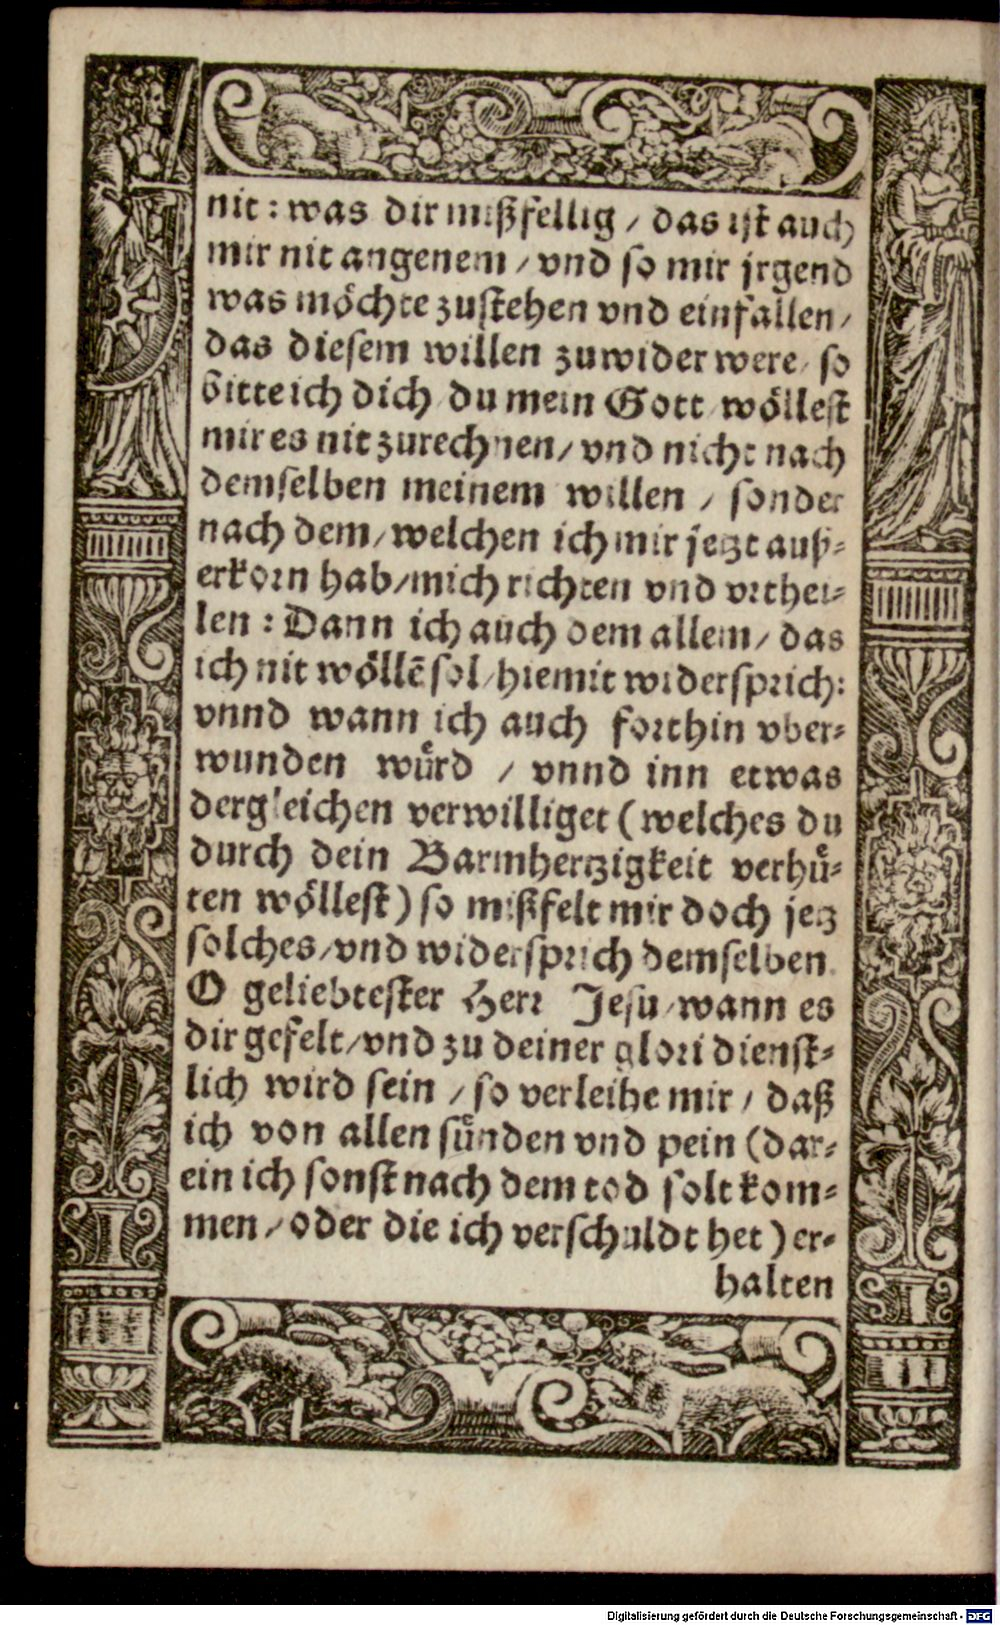 nit: was dir mißfellig / das ist auch
mir nit angenem / vnd so mir jrgend
was möchte zustehen vnd einfallen /
das diesem willen zuwider were / so
bitte ich dich du mein Gott wöllest
mir es nit zurechnen / vnd nicht nach
demselben meinem willen / sonder
nach dem / welchen ich mir jetzt auß-
erkorn hab / mich richten vnd vrthei-
len: Dann ich auch dem allem / das
ich nit wöllē sol / hiemit widersprich:
vnnd wann ich auch forthin vber-
wunden wuͤrd / vnnd inn etwas
dergleichen verwilliget (welches du
durch dein Barmhertzigkeit verhuͤ-
ten wöllest) so mißfelt mir doch jetz
solches / vnd widersprich demselben.
O geliebtester Herr Jesu / wann es
dir gefelt / vnd zu deiner glori dienst-
lich wird sein / so verleihe mir / daß
ich von allen suͤnden vnd pein (dar-
ein ich sonst nach dem tod solt kom-
men / oder die ich verschuldt het) er-
halten
Digitalisierung gefördert durch die Deutsche Forschungsgemeinschaft - DFG